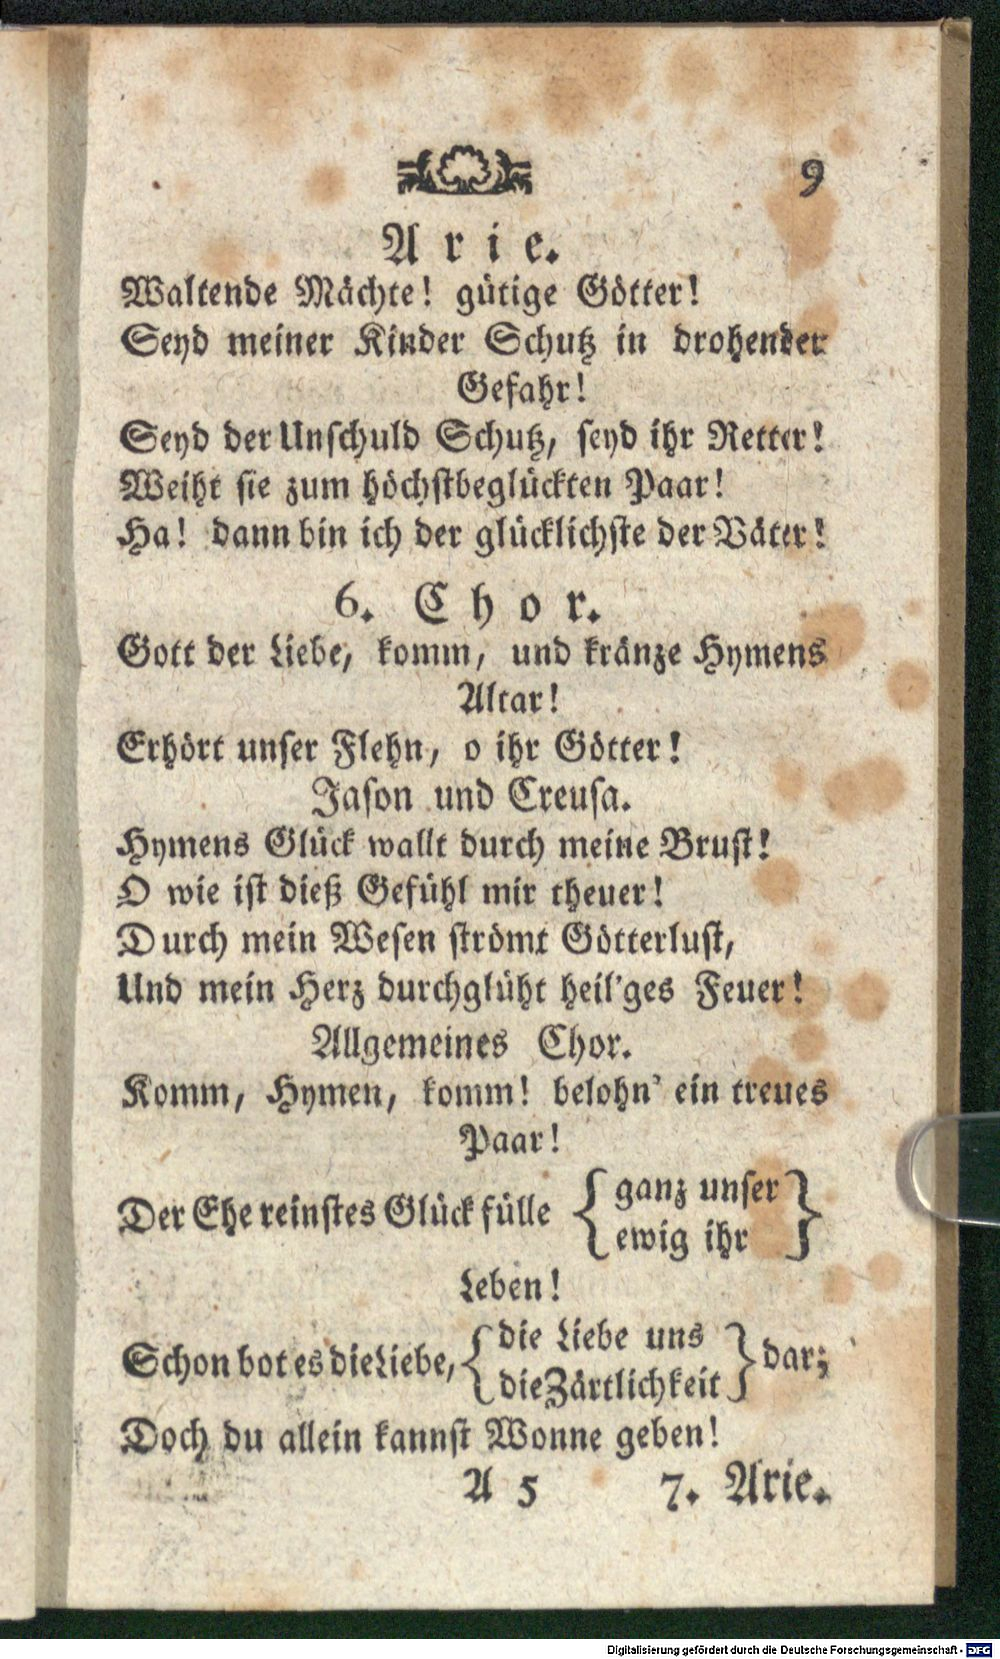 9
Arie.
Waltende Mächte! gütige Götter!
Seyd meiner Kinder Schutz in drohender
Gefahr!
Seyd der Unschuld Schutz, seyd ihr Retter!
Weiht sie zum höchstbeglückten Paar!
Ha! dann bin ich der glücklichste der Väter!
6. Chor.
Gott der Liebe, komm, und kränze Hymens
Altar!
Erhört unser Flehn, o ihr Götter!
Jason und Creusa.
Hymens Glück wallt durch meine Brust!
O wie ist dieß Gefühl mir theuer!
Durch mein Wesen strömt Götterlust,
Und mein Herz durchglüht heil'ges Feuer!
Allgemeines Chor.
Komm, Hymen, komm! belohn' ein treues
Paar!
Der Ehe reinstes Glück fülle { ganz unser
ewig ihr }
Leben!
Schon bot es die Liebe, { die Liebe uns
die Zärtlichkeit } dar;
Doch du allein kannst Wonne geben!
A 5 7. Arie.
Digitalisierung gefördert durch die Deutsche Forschungsgemeinschaft - DFG